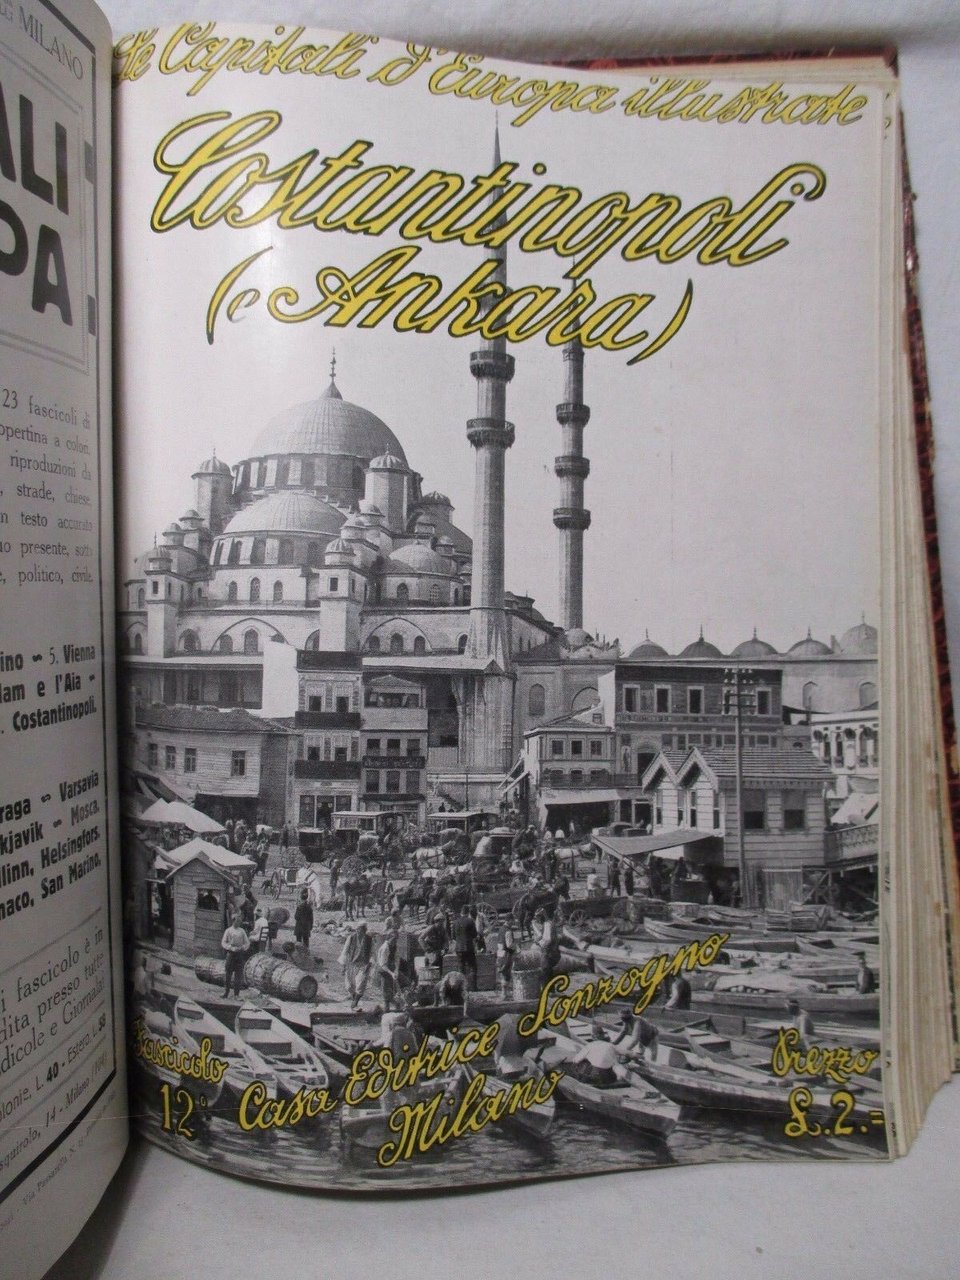 MILANO
ALI
OPA
23 fascicoli di
opertina a colori,
riproduzioni da
strade, chiese,
testo accurato
presente, sotto
politico, civile.
5. Vienna
e l'Aia -
Costantinopoli.
raga - Varsavia
kjavik - Mosca,
llinn, Helsingfors,
naco, San Marino.
fascicolo è in
dita presso tutte
dicole e Giornalai
olonie, L. 40 - Estero, L. 58
squirolo, 14 - Milano (104)
Le Capitali d'Europa illustrate
Costantinopoli
(e Ankara)
Fascicolo
12º
Casa Editrice Sonzogno
Milano
Prezzo
£.2.=